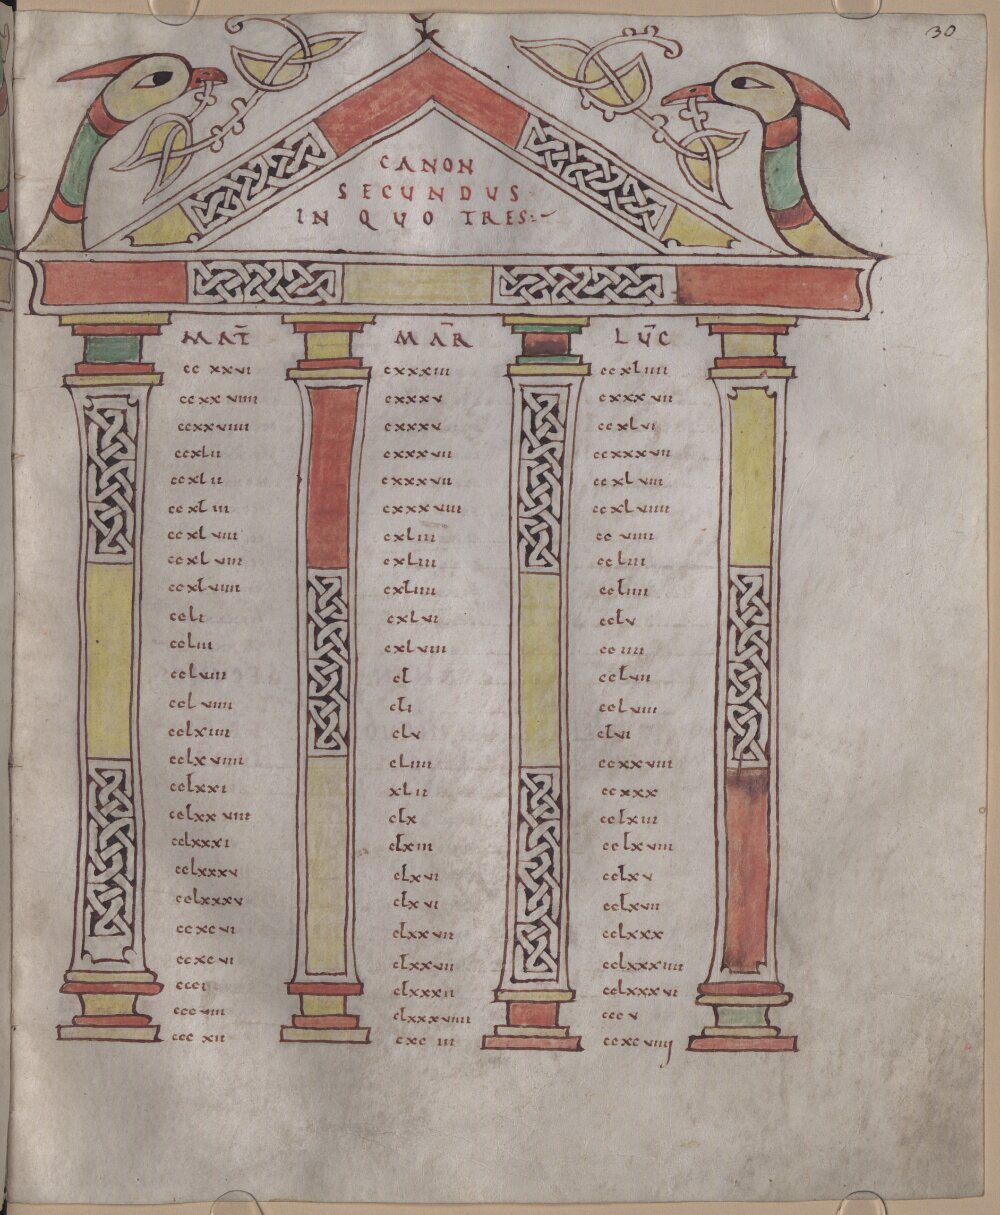 30
CANON
SECUNDUS
IN QUO TRES:~
MAT̄ MAR̄ LUC̄
ccxxvi cxxxiii ccxliiii
ccxxviiii cxxxv cxxxvii
ccxxviiii cxxxv ccxlvi
ccxlii cxxxvii ccxxxvii
ccxlii cxxxvii ccxlviii
ccxliii cxxxviiii ccxlviiii
ccxlviii cxliii ccviiii
ccxlviii cxliii ccliii
ccxlviiii cxliiii ccliiii
ccli cxlvi cclv
ccliii cxlviii cciiii
cclviii cl cclvii
cclviiii cli cclviii
cclxiiii clv clvi
cclxviiii cliiii ccxxviii
cclxxi xlii ccxxx
cclxxviii clx cclxiii
cclxxxi clxiii cclxviii
cclxxxv clxvi cclxv
cclxxxv clxvi cclxvii
ccxcvi clxxvii cclxxx
ccxcvi clxxvii cclxxxiiii
ccci clxxxii cclxxxvi
cccviii clxxxviiii cccv
cccxii cxciii ccxcviiij